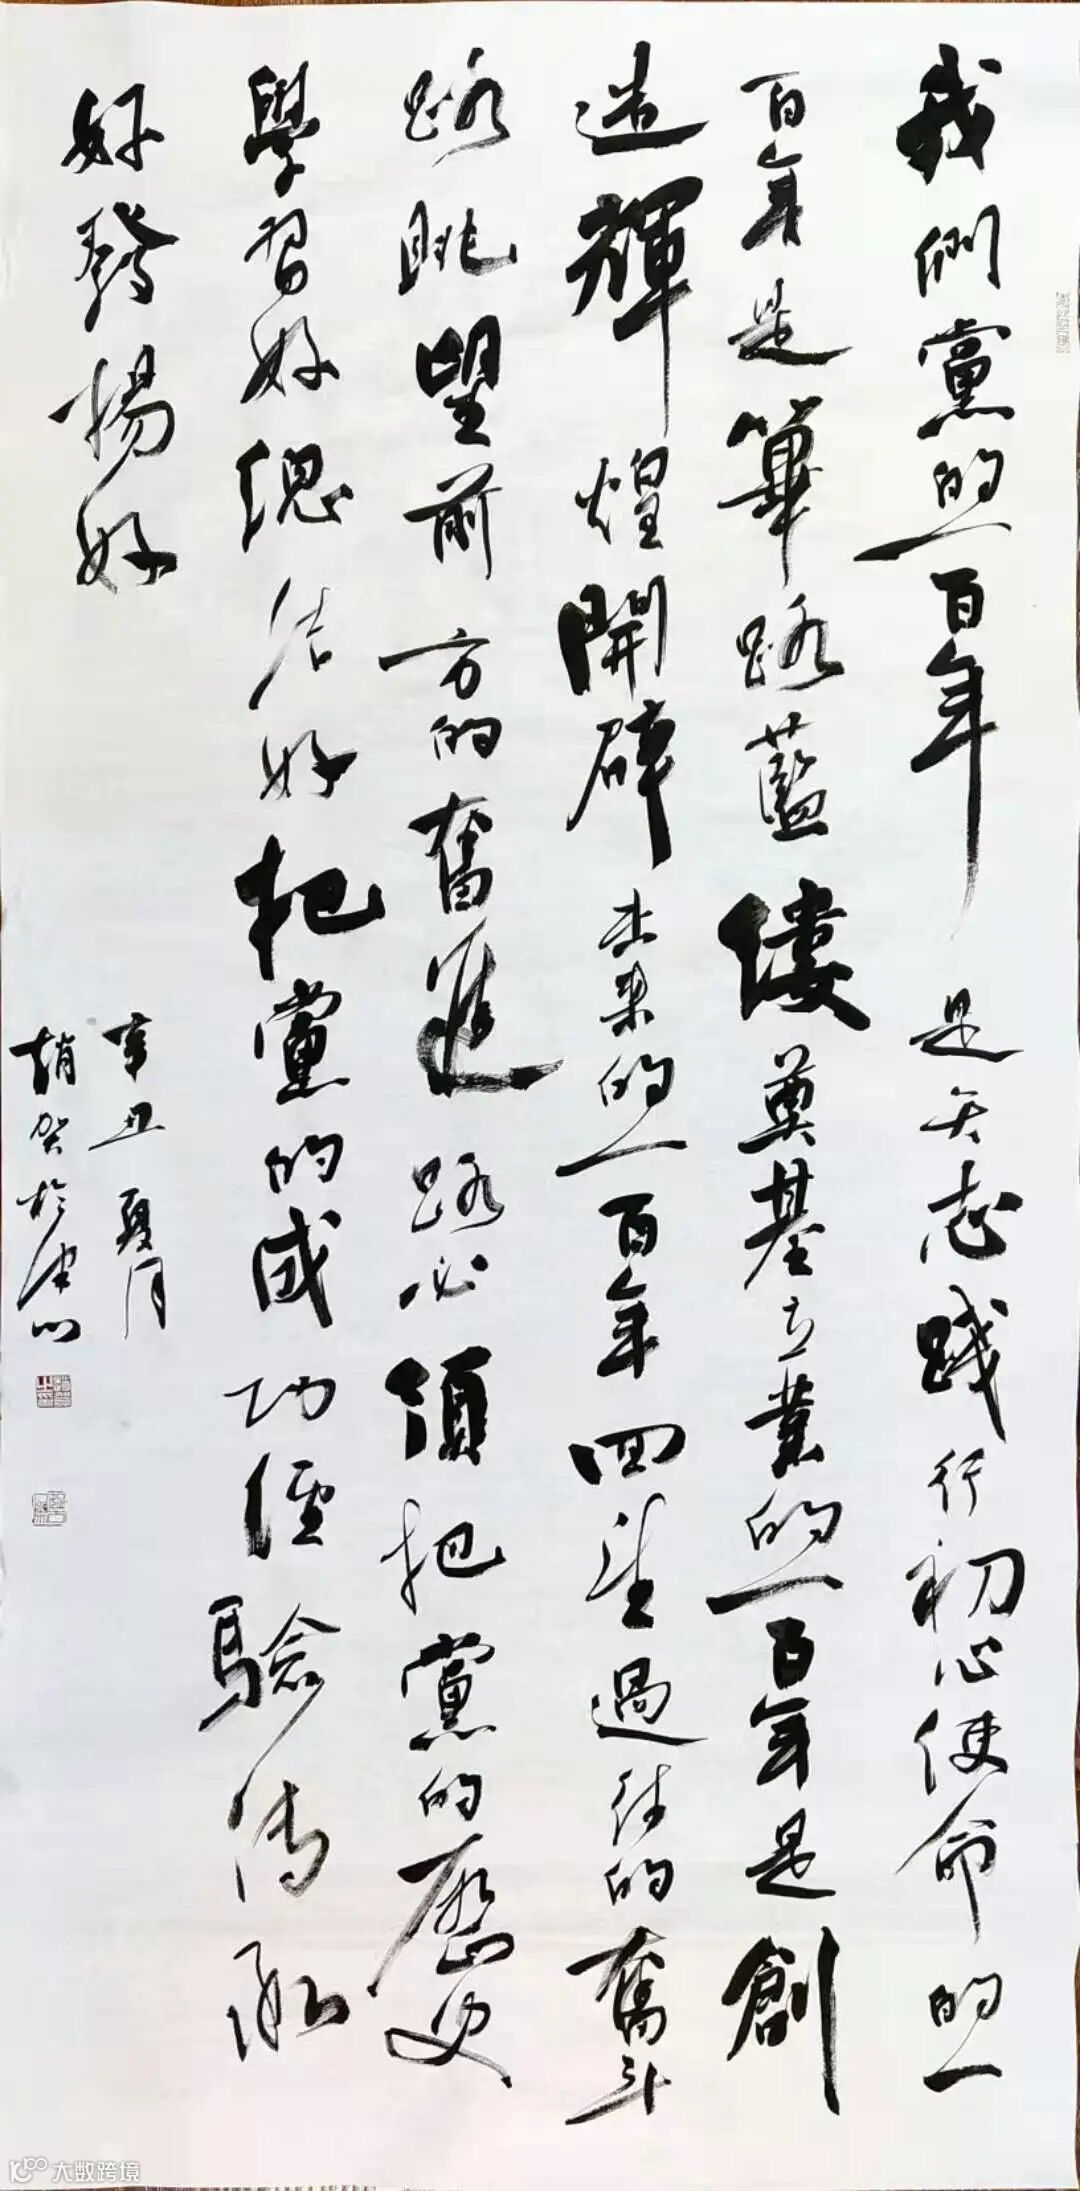 我們黨的一百年是矢志踐行初心使命的一
百年是篳路藍縷奠基立業的一百年是創
造輝煌開辟未来的一百年回望過往的奮斗
路眺望前方的奮進路必須把黨的歷史
學習好總结好把黨的成功經驗傳承
好發揚好
辛丑夏月
趙賀於津門
大数跨境